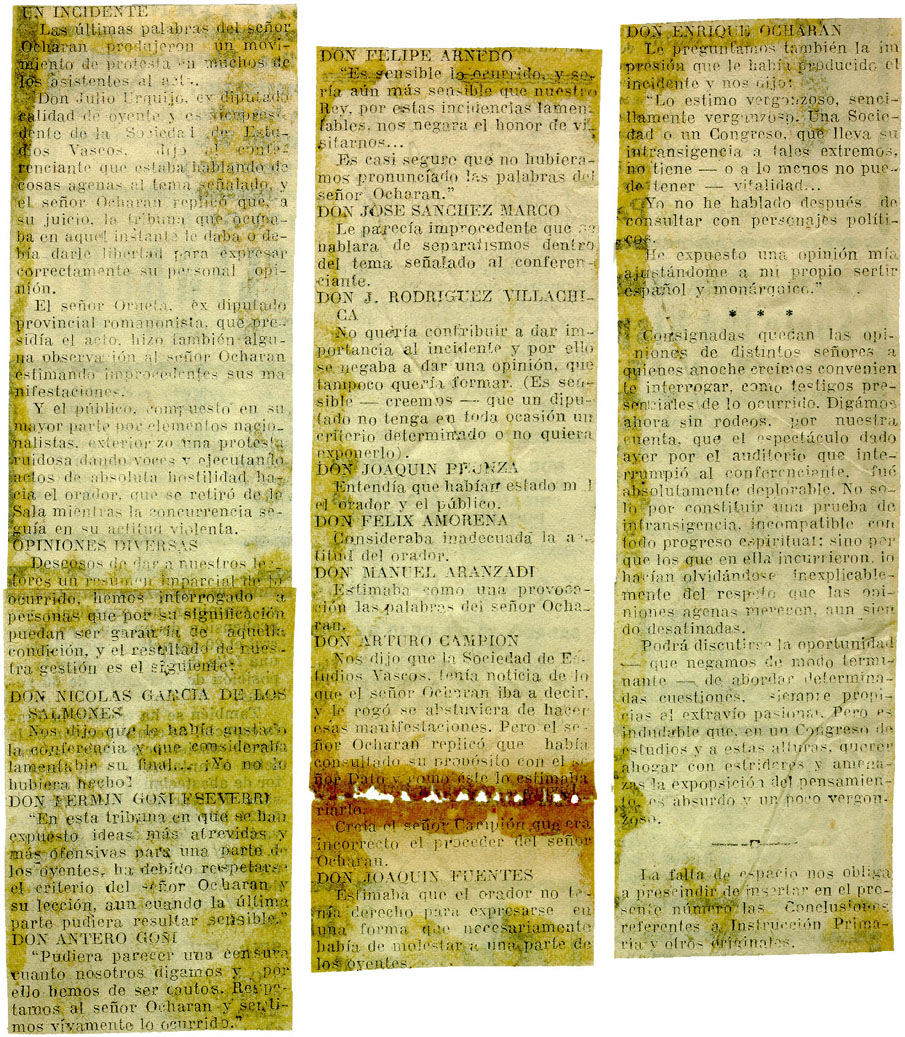 UN INCIDENTE
Las últimas palabras del señor
Ocharan produjeron un movi-
miento de protesta en muchos de
los asistentes al acto.
Don Julio Urquijo, ex diputado
calidad de oyente y es vicepresi-
dente de la Sociedad de Estu-
dios Vascos, dijo al confe-
renciante que estaba hablando de
cosas agenas al tema señalado, y
el señor Ocharan replicó que, a
su juicio, la tribuna que ocupa-
ba en aquel instante le daba o de-
bía darle libertad para expresar
correctamente su personal opi-
nión.
El señor Orueta, ex diputado
provincial romanonista, que pre-
sidía el acto, hizo también algu-
na observación al señor Ocharan
estimando improcedentes sus ma
nifestaciones.
Y el público, compuesto en su
mayor parte por elementos nacio-
nalistas, exteriorizo una protesta
ruidosa dando voces y ejecutando
actos de absoluta hostilidad ha-
cia el orador, que se retiró de la
Sala mientras la concurrencia se-
guía en su actitud violenta.
OPINIONES DIVERSAS
Deseosos de dar a nuestros lec-
tores un resumen imparcial de lo
ocurrido, hemos interrogado a
personas que por su significación
puedan ser garantía de aquella
condición, y el resultado de nues-
tra gestión es el siguiente:
DON NICOLAS GARCIA DE LOS
SALMONES
Nos dijo que le había gustado
la conferencia y que consideraba
lamentable su final... ¡Yo no lo
hubiera hecho!
DON FERMIN GOÑI ESEVERRI
"En esta tribuna en que se han
expuesto ideas más atrevidas y
más ofensivas para una parte de
los oyentes, ha debido respetarse
el criterio del señor Ocharan y
su lección, aun cuando la última
parte pudiera resultar sensible."
DON ANTERO GOÑI
"Pudiera parecer una censura
cuanto nosotros digamos y por
ello hemos de ser cautos. Respe-
tamos al señor Ocharan y senti-
mos vivamente lo ocurrido."
DON FELIPE ARNEDO
"Es sensible lo ocurrido, y se-
ría aún más sensible que nuestro
Rey, por estas incidencias lamen-
tables, nos negara el honor de vi-
sitarnos...
Es casi seguro que no hubiera-
mos pronunciado las palabras del
señor Ocharan."
DON JOSE SANCHEZ MARCO
Le parecía improcedente que se
hablara de separatismos dentro
del tema señalado al conferen-
ciante.
DON J. RODRIGUEZ VILLACHI-
CA
No quería contribuir a dar im-
portancia al incidente y por ello
se negaba a dar una opinión, que
tampoco quería formar. (Es sen-
sible — creemos — que un dipu-
tado no tenga en toda ocasión un
criterio determinado o no quiera
exponerlo).
DON JOAQUIN
Entendía que habían estado mal
el orador y el público.
DON FELIX AMORENA
Consideraba inadecuada la ac-
titud del orador.
DON MANUEL ARANZADI
Estimaba como una provoca-
ción las palabras del señor Ocha-
ran.
DON ARTURO CAMPION
Nos dijo que la Sociedad de Es-
tudios Vascos, tenía noticia de lo
que el señor Ocharan iba a decir,
y le rogó se abstuviera de hacer
esas manifestaciones. Pero el se-
ñor Ocharan replicó que había
consultado su propósito con el se-
ñor Dato y como este lo estimaba
riarlo.
Creía el señor Campión que era
incorrecto el proceder del señor
Ocharan.
DON JOAQUIN FUENTES
Estimaba que el orador no te-
nía derecho para expresarse en
una forma que necesariamente
había de molestar a una parte de
los oyentes.
DON ENRIQUE OCHARAN
Le preguntamos también la im
presión que le había producido el
incidente y nos dijo:
"Lo estimo vergonzoso, senci-
llamente vergonzoso. Una Socie-
dad o un Congreso, que lleva su
intransigencia a tales extremos,
no tiene — o a lo menos no pue-
de tener — vitalidad...
Yo no he hablado después de
consultar con personajes políti-
cos.
He expuesto una opinión mía
ajustándome a mi propio sentir
español y monárquico."
* * *
Consignadas quedan las opi-
niones de distintos señores a
quienes anoche creímos convenien
te interrogar, como testigos pre-
senciales de lo ocurrido. Digámos
ahora sin rodeos, por nuestra
cuenta, que el espectáculo dado
ayer por el auditorio que inte-
rrumpió al conferenciante, fué
absolutamente deplorable. No so-
lo por constituir una prueba de
intransigencia, incompatible con
todo progreso espiritual; sino por
que los que en ella incurrieron, lo
hacían olvidándose inexplicable-
mente del respeto que las opi-
niones agenas merecen, aun sien
do desatinadas.
Podrá discutirse la oportunidad
— que negamos de modo termi-
nante — de abordar determina-
das cuestiones, siempre propi-
cias al extravío pasional. Pero es
indudable que, en un Congreso de
estudios y a estas alturas, querer
ahogar con estridores y amena-
zas la exposición del pensamien-
to, es absurdo y un poco vergon-
zoso.
La falta de espacio nos obliga
a prescindir de insertar en el pre-
sente número las Conclusiones
referentes a Instrucción Prima-
ria y otros originales.